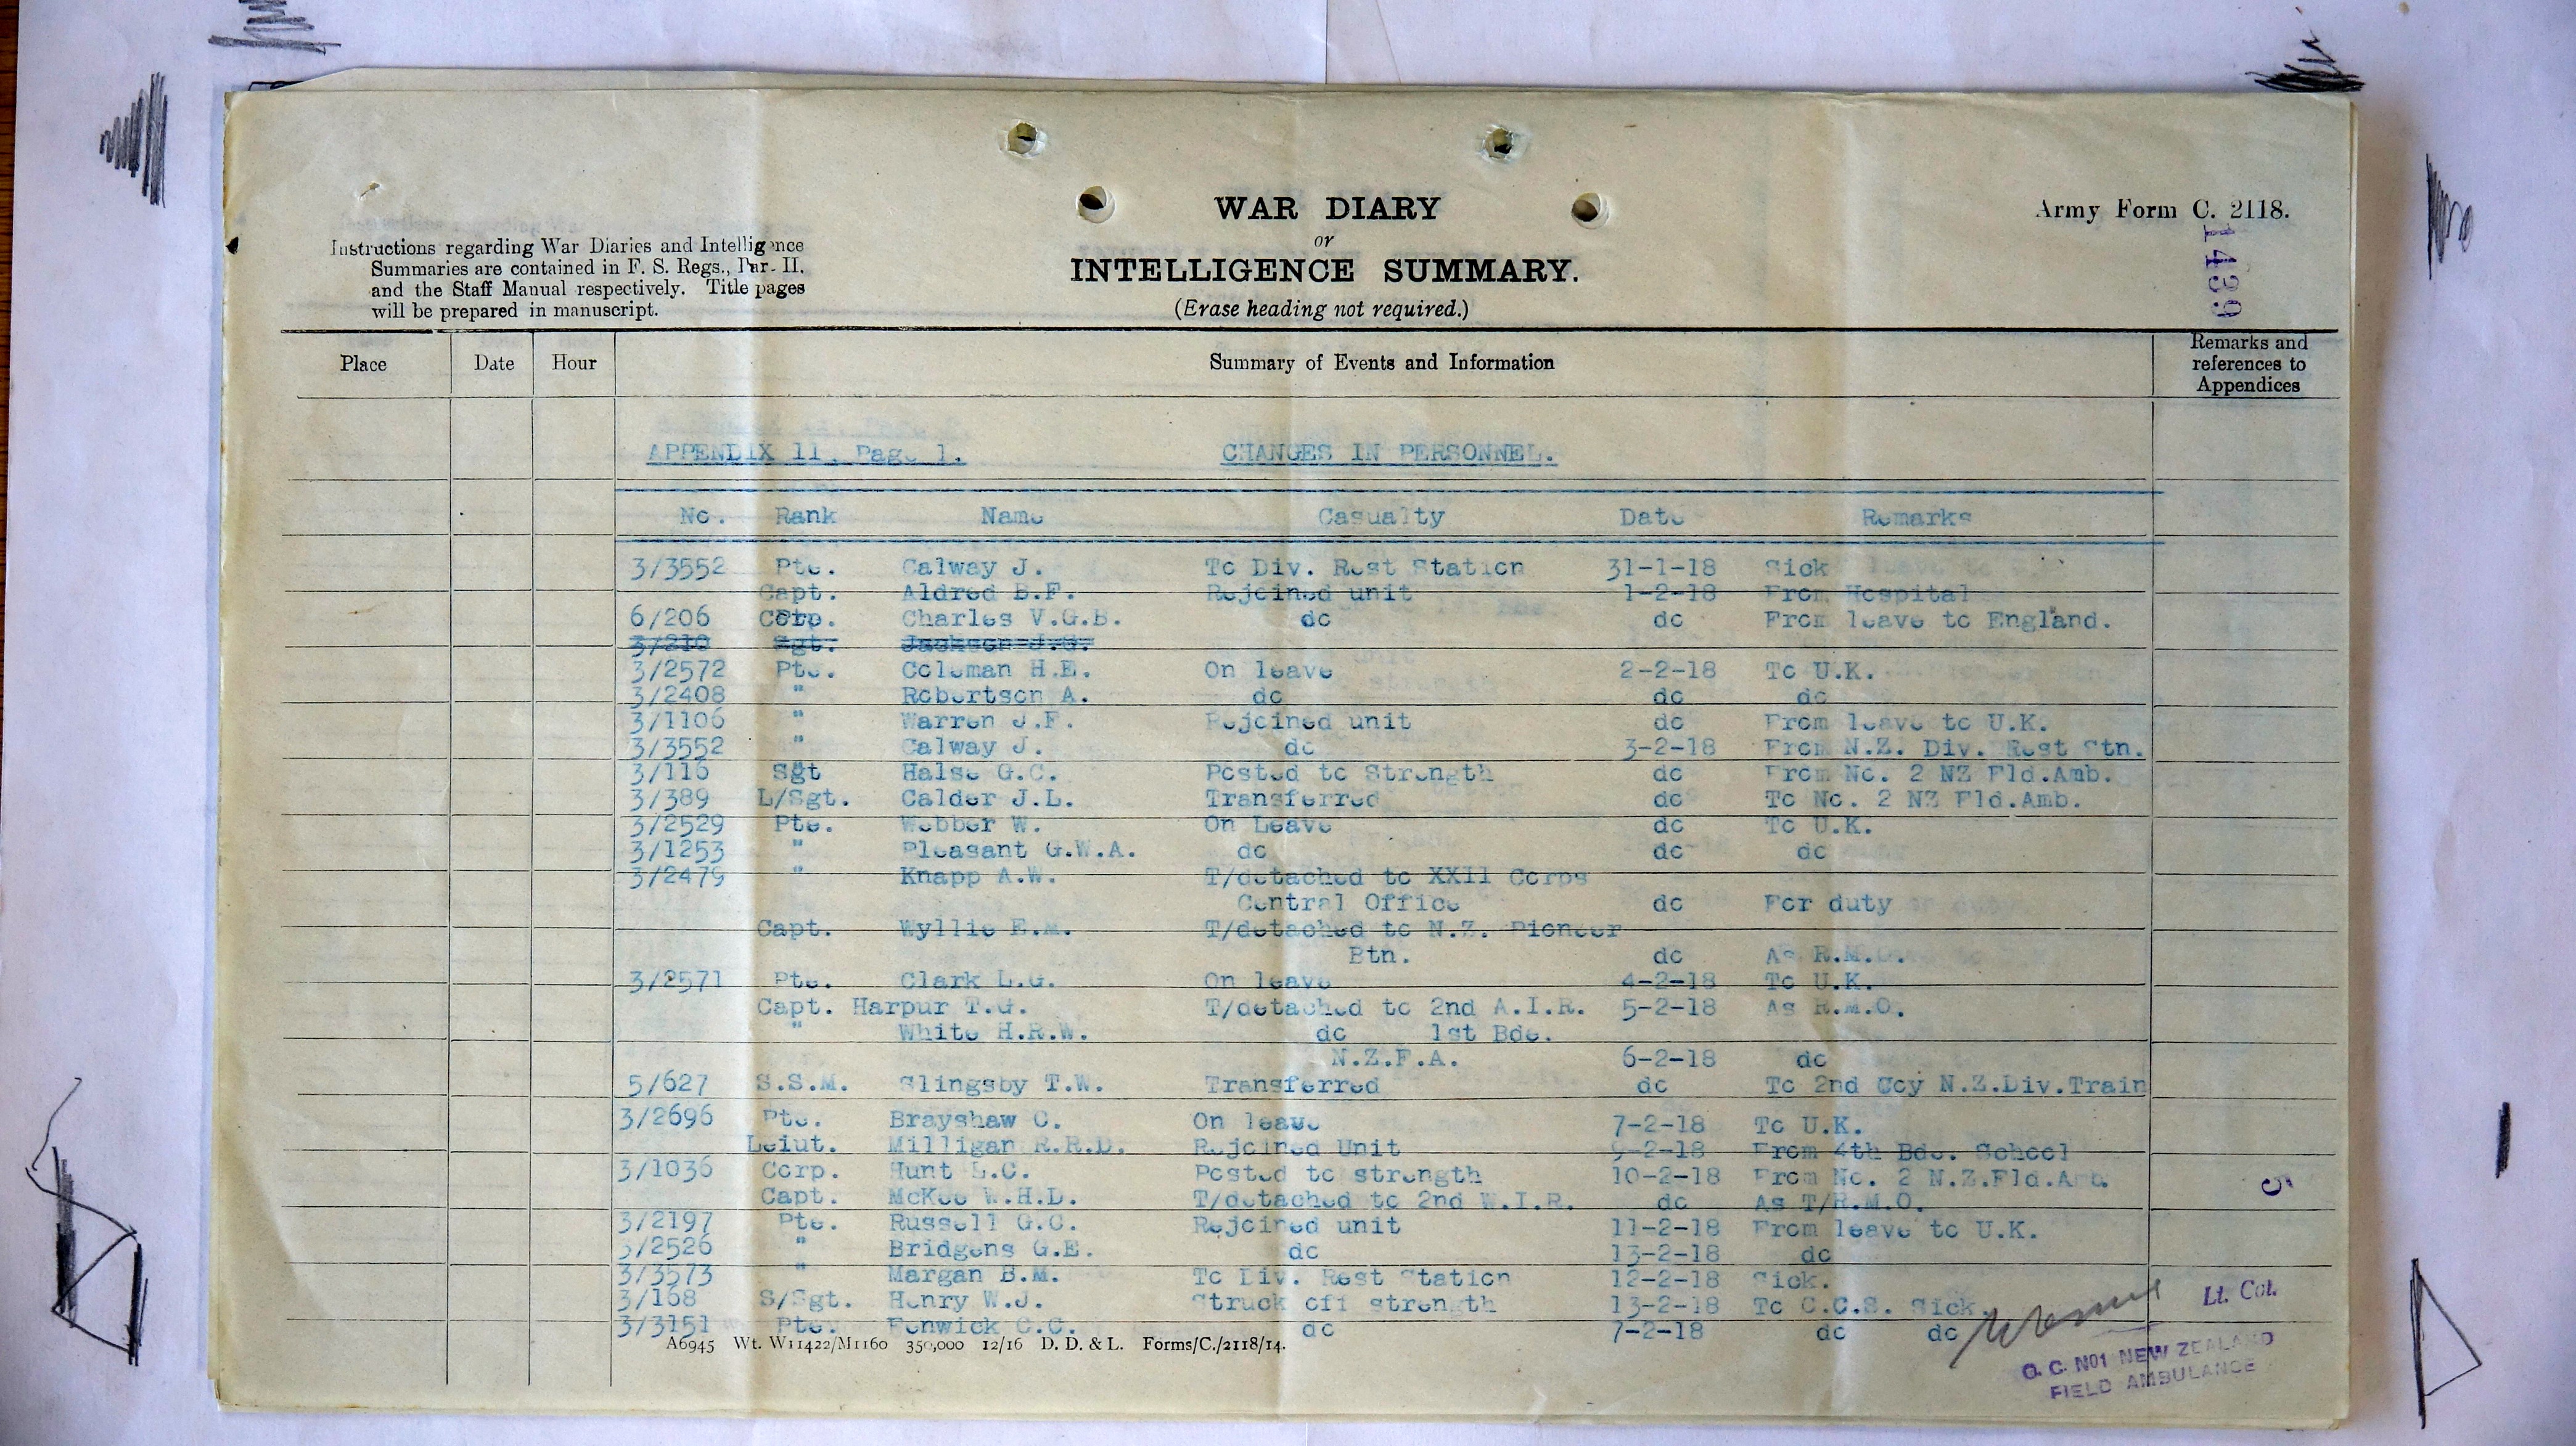 WAR DIARY
or
INTELLIGENCE SUMMARY.
(Erase heading not required.)
Army Form C. 2118.
1439
Instructions regarding War Diaries and Intelligence
Summaries are contained in F. S. Regs., Par. II.
and the Staff Manual respectively. Title pages
will be prepared in manuscript.
Place Date Hour Summary of Events and Information Remarks and
references to
Appendices
APPENDIX 11. Page 1. CHANGES IN PERSONNEL.
No. Rank Name Casualty Date Remarks
3/3552 Pte. Calway J. To Div. Rest Station 31-1-18 Sick
Capt. Aldred B.F. Rejoined unit 1-2-18 From Hospital
6/206 Corp. Charles V.G.B. do do From leave to England.
3/210 Sgt. Jackson J.G.
3/2572 Pte. Coleman H.E. On leave 2-2-18 To U.K.
3/2408 " Robertson A. do do do
3/1106 " Warren J.F. Rejoined unit do From leave to U.K.
3/3552 " Calway J. do 3-2-18 From N.Z. Div. Rest Stn.
3/116 Sgt Halse G.C. Posted to Strength do From No. 2 NZ Fld.Amb.
3/389 L/Sgt. Calder J.L. Transferred do To No. 2 NZ Fld.Amb.
3/2529 Pte. Webber W. On Leave do To U.K.
3/1253 " Pleasant G.W.A. do do do
3/2479 " Knapp A.W. T/detached to XXII Corps
Central Office do For duty
Capt. Wyllie E.M. T/detached to N.Z. Pioneer
Btn. do As R.M.O.
3/2571 Pte. Clark L.G. On leave 4-2-18 To U.K.
Capt. Harpur T.G. T/detached to 2nd A.I.R. 5-2-18 As R.M.O.
" White H.R.W. do 1st Bde.
N.Z.F.A. 6-2-18 do
5/627 S.S.M. Slingsby T.W. Transferred do To 2nd Coy N.Z.Div.Train
3/2696 Pte. Brayshaw C. On leave 7-2-18 To U.K.
Leiut. Milligan R.R.D. Rejoined Unit 9-2-18 From 4th Bde. School
3/1036 Corp. Hunt L.C. Posted to strength 10-2-18 From No. 2 N.Z.Fld.Amb.
Capt. McKee W.H.D. T/detached to 2nd W.I.R. do As T/R.M.O.
3/2197 Pte. Russell G.C. Rejoined unit 11-2-18 From leave to U.K.
3/2526 " Bridgens G.E. do 13-2-18 do
3/3573 " Margan B.M. To Div. Rest Station 12-2-18 Sick.
3/168 S/Sgt. Henry W.J. Struck off strength 13-2-18 To C.C.S. Sick.
3/3151 Pte. Fenwick C.C. do 7-2-18 do do
Lt. Col.
O. C. No1 NEW ZEALAND
FIELD AMBULANCE
A6945 Wt. W11422/M1160 350,000 12/16 D. D. & L. Forms/C./2118/14.